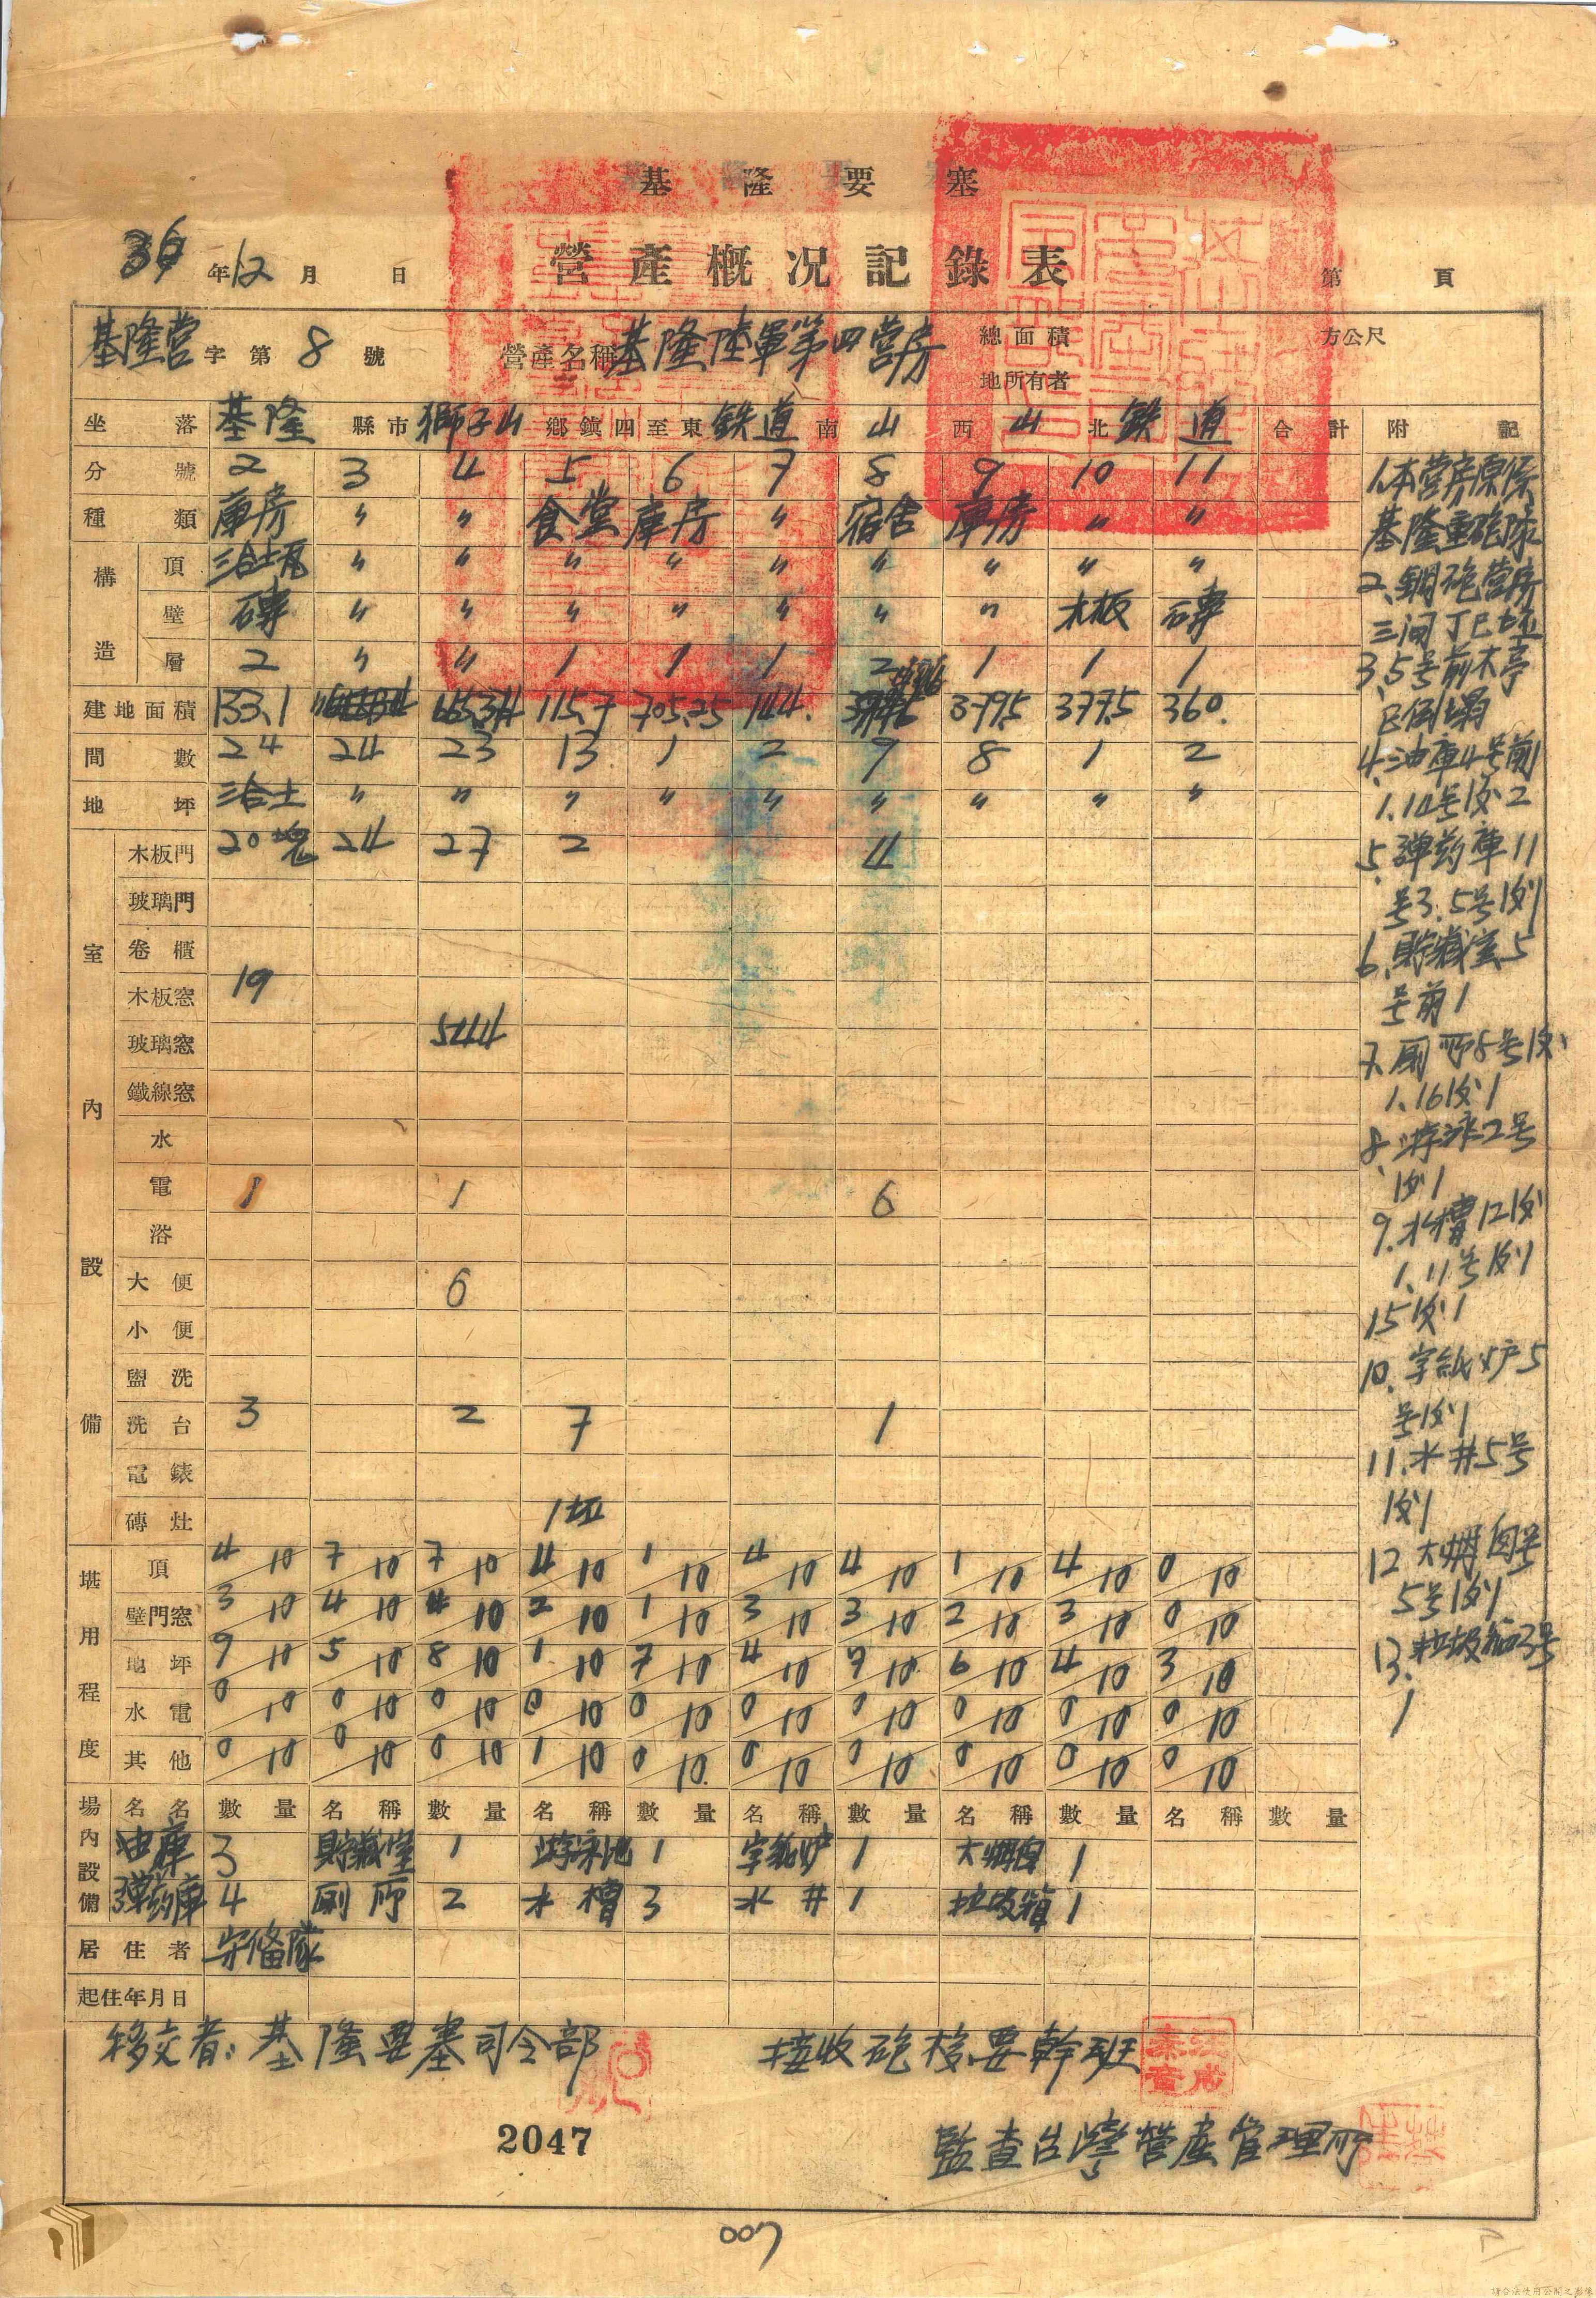 基隆要塞
營產概况記錄表
36年12月 日
第 頁
基隆營字第8號 營產名稱基隆陸軍第四營房 總面積 方公尺
地所有者
坐落 基隆縣市獅子山鄉鎮四至東鉄道南山西山北鉄道 合計 附記
分號 2 3 4 5 6 7 8 9 10 11
種類 庫房 〃 〃 食堂 庫房 〃 宿舍 庫房 〃 〃
構造 頂 三合土瓦 〃 〃 〃 〃 〃 〃 〃 〃 〃
壁 磚 〃 〃 〃 〃 〃 〃 〃 木板 磚
層 2 〃 〃 1 1 1 2 1 1 1
建地面積 133.1 115.7 705.25 144. 379.5 377.5 360.
間數 24 24 23 13 1 2 9 8 1 2
地坪 三合土 〃 〃 〃 〃 〃 〃 〃 〃 〃
室內設備
木板門 20塊 24 27 2 4
玻璃門
卷櫃
木板窓 19
玻璃窓 544
鐵線窓
水
電 8 1 6
浴
大便 6
小便
盥洗
洗台 3 2 7 1
電錶
磚灶 1坵
堪用程度
頂 4/10 7/10 7/10 4/10 1/10 4/10 4/10 1/10 4/10 0/10
壁門窓 3/10 4/10 4/10 2/10 1/10 3/10 3/10 2/10 3/10 0/10
地坪 9/10 5/10 8/10 1/10 7/10 4/10 7/10 6/10 4/10 3/10
水電 0/10 0/10 0/10 0/10 0/10 0/10 0/10 0/10 0/10 0/10
其他 0/10 0/10 0/10 1/10 0/10 0/10 0/10 0/10 0/10 0/10
場內設備
名名 數量 名稱 數量 名稱 數量 名稱 數量 名稱 數量 名稱 數量
油庫 3 貯藏室 1 游泳池 1 字紙炉 1 大烟囱 1
彈药庫 4 厠所 2 水槽 3 水井 1 垃圾箱 1
居住者 守俻隊
起住年月日
1.本營房原係
基隆重砲隊
2、鋼砲營房
三间丁已
3、5号前木亭
已倒塌
4、油庫4号前
1.14号後2
5、彈药庫11
号3.5号後1
6、貯藏室5
号前1
7、厠所8号後
1、16後1
8、游泳2号
後1
9.水槽12後
1、11号後1
15後1
10、字紙炉5
号後1
11.水井5号
後1
12 大烟囱号
5号後1
13、垃圾箱3号
1
移交者：基隆要塞司令部
接收砲校要幹班
監查台灣營産管理所
2047
007
請合法使用公開之影像